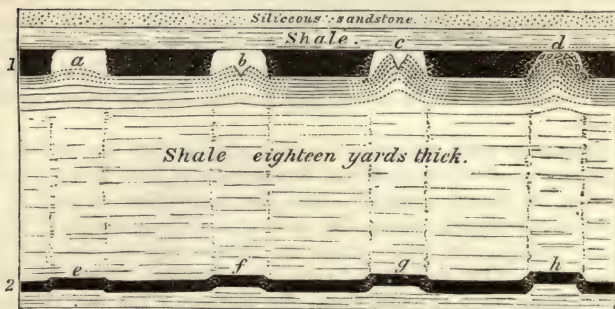 Siliceous sandstone.
Shale.
1 a b c d
Shale eighteen yards thick.
2 e f g h